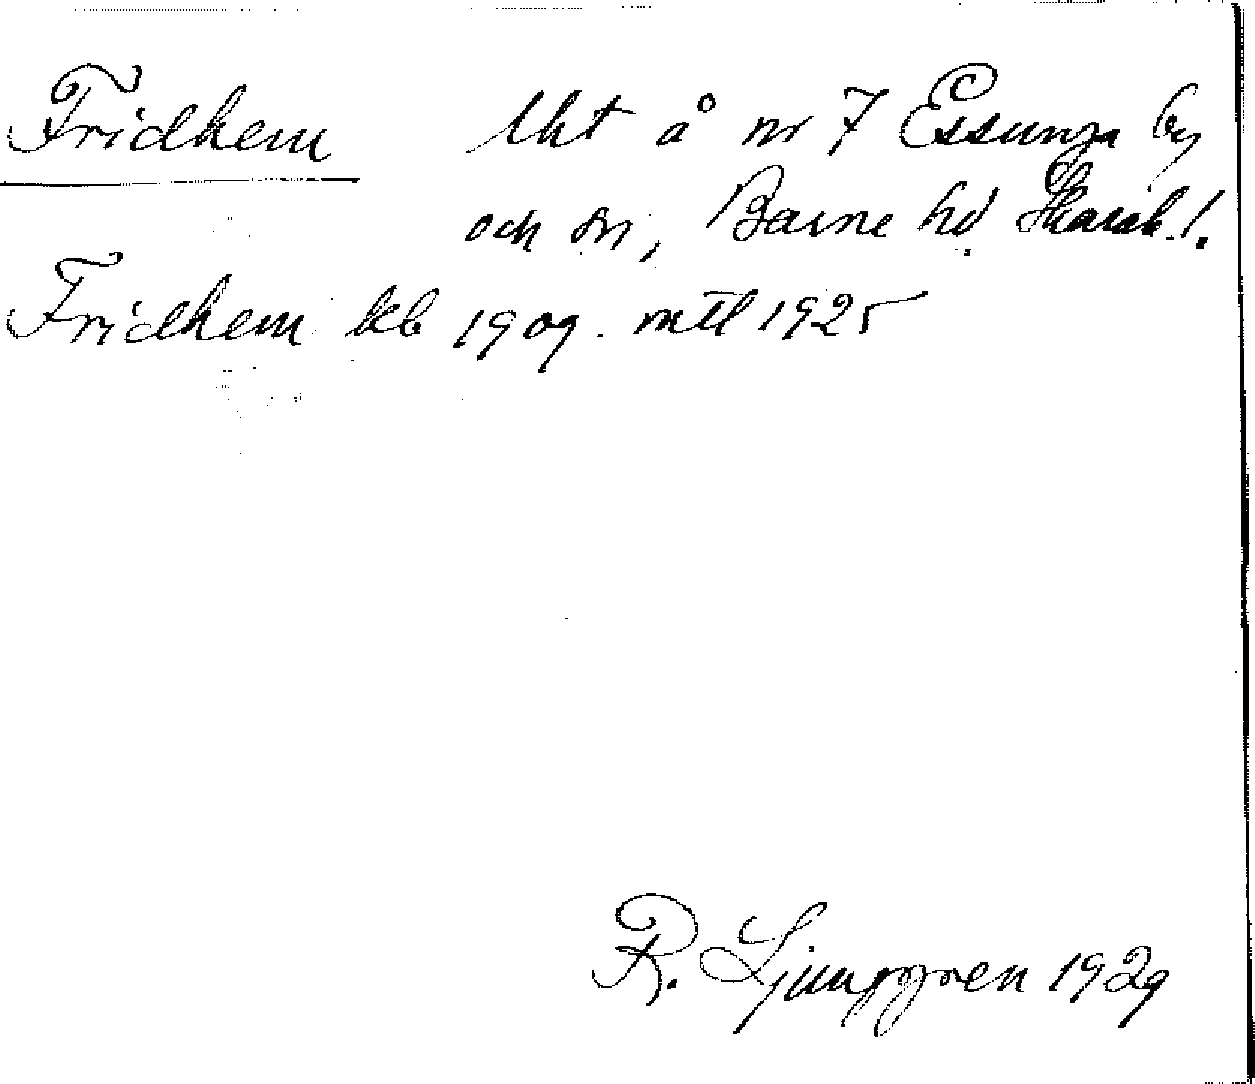 Fridhem lht å nr 7 Essunga by
och sn, Barne hd Skarab. l.
Fridhem kb 1909. mtl 1925
R. Ljunggren 1929